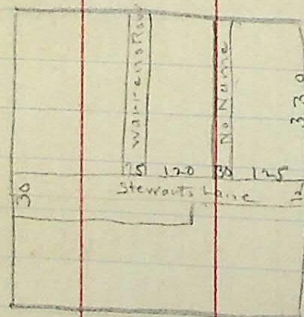 Warrens Row
No Name
330
15 120 30 125
Stewarts Lane
30
12